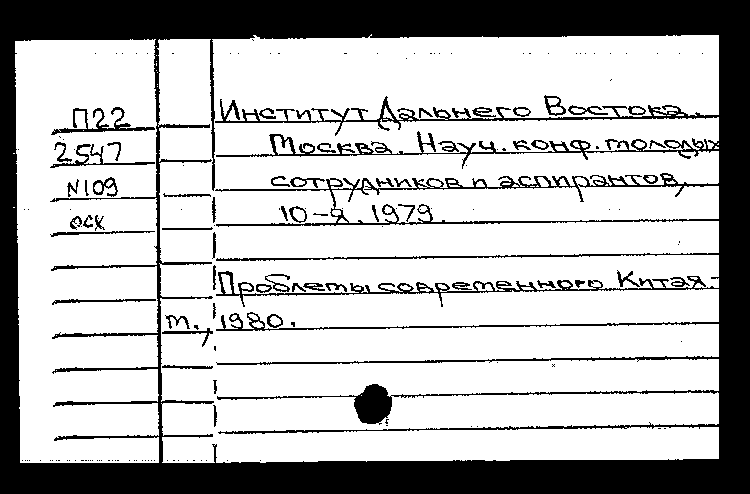 П22 Институт Дальнего Востока.
2547 Москва. Науч. конф. молодых
N109 сотрудников и аспирантов,
осх 10-я. 1979.
Проблемы современного Китая.-
м., 1980.